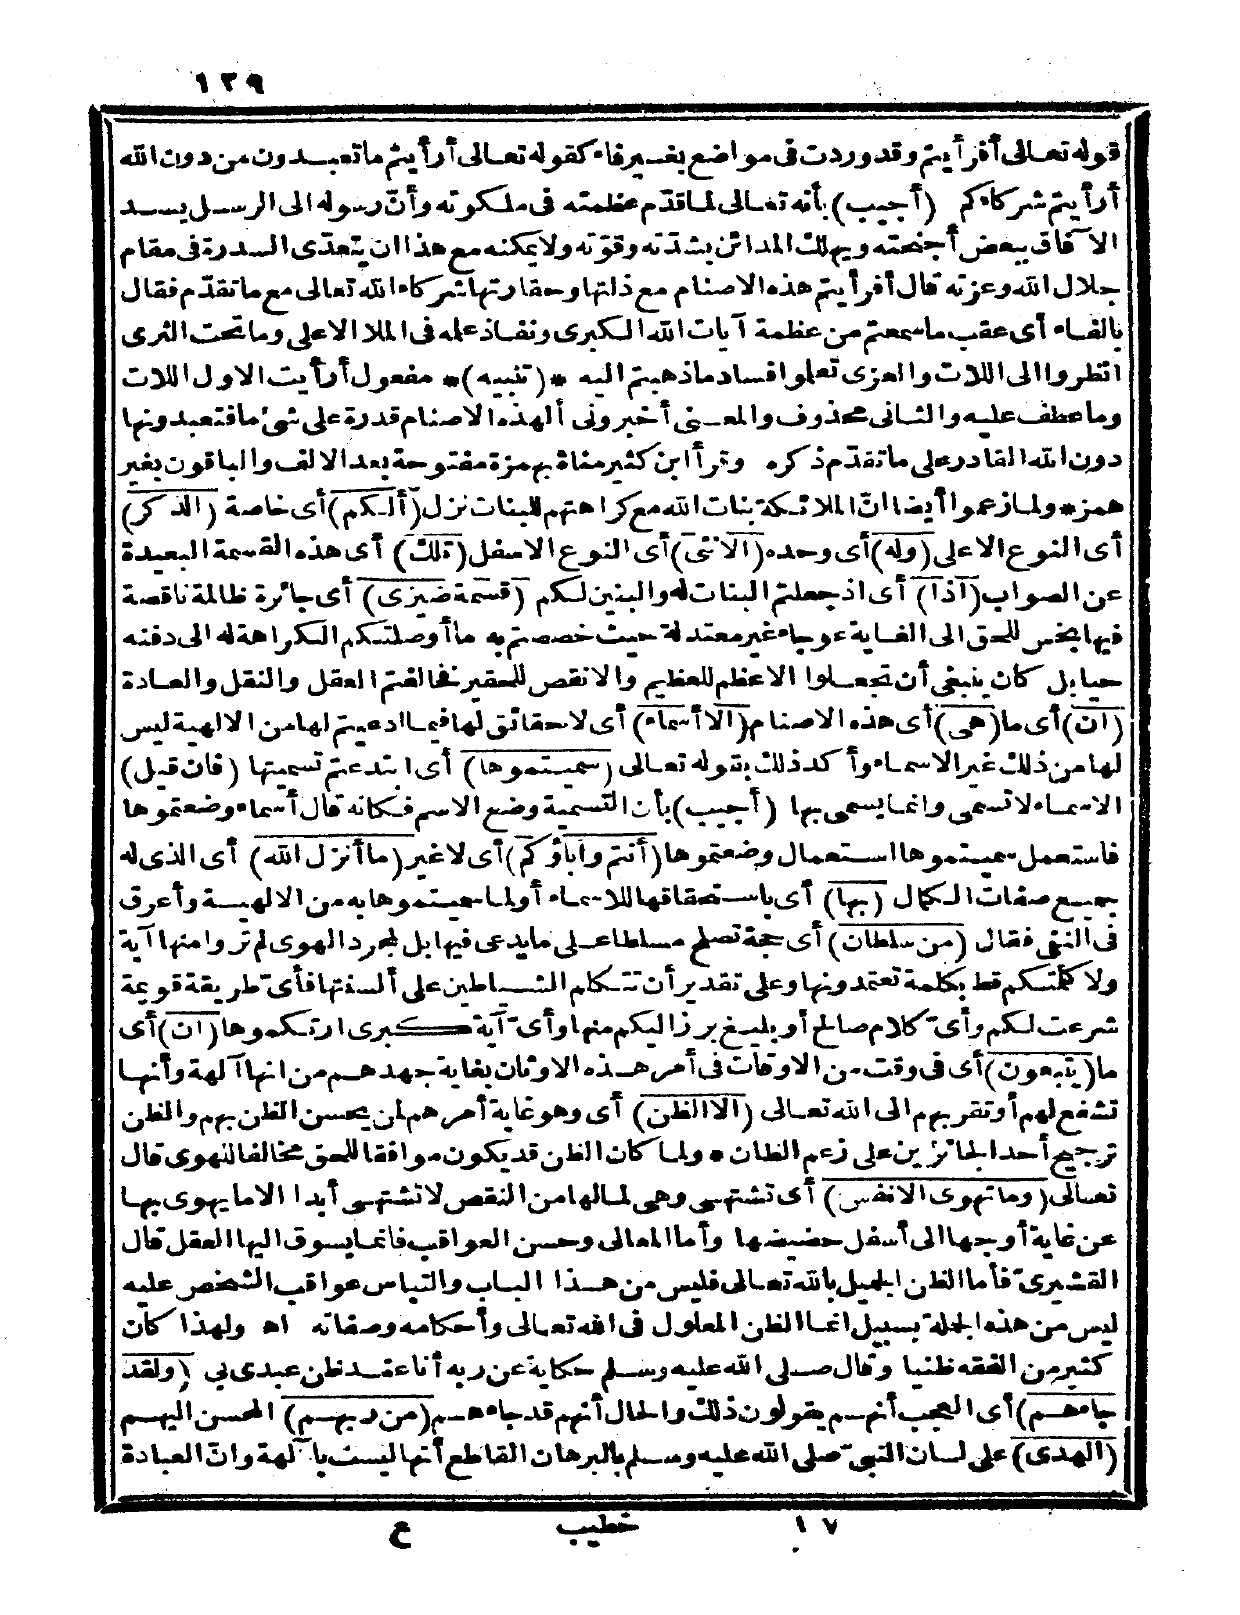 ١٢٩
قوله تعالى أفرأيتم وقد وردت فى مواضع بغير فاء كقوله تعالى أرأيتم ما تعبدون من دون الله
أرأيتم شركاءكم (أجيب) بأنه تعالى لما قدّم عظمته فى ملكوته وأنّ رسوله الى الرسل يسد
الآفاق ببعض أجنحته ويهلك المدائن بشدّته وقوّته ولا يمكنه مع هذا ان يتعدّى السدرة فى مقام
جلال الله وعزته قال أفرأيتم هذه الاصنام مع ذلتها وحقارتها شركاء الله تعالى مع ما تقدّم فقال
بالفاء أى عقب ما سمعتم من عظمة آيات الله الكبرى ونفاذ علمه فى الملا الاعلى وما تحت الثرى
انظروا الى اللات والعزى تعلموا فساد ما ذهبتم اليه * (تنبيه) * مفعول أرأيت الاول اللات
وما عطف عليه والثانى محذوف والمعنى أخبرونى ألهذه الاصنام قدرة على شئ ما فتعبدونها
دون الله القادر على ما تقدّم ذكره وقرأ ابن كثير مناة بهمزة مفتوحة بعد الالف والباقون بغير
همز * ولما زعموا أيضا انّ الملائكة بنات الله مع كراهتهم للبنات نزل (ألكم) أى خاصة (الذكر)
أى النوع الاعلى (وله) أى وحده (الانثى) أى النوع الاسفل (تلك) أى هذه القسمة البعيدة
عن الصواب (اذا) أى اذ جعلتم البنات له والبنين لكم (قسمة ضيزى) أى جائرة ظالمة ناقصة
فيها بخس للحق الى الغاية عوجاء غير معتدلة حيث خصصتم به ما أوصلتكم الكراهة له الى دفنه
حيا بل كان ينبغى أن تجعلوا الاعظم للعظيم والانقص للحقير فخالفتم العقل والنقل والعادة
(ان) أى ما (هى) أى هذه الاصنام (الا أسماء) أى لا حقائق لها فيما ادعيتم لها من الالهية ليس
لها من ذلك غير الاسماء وأكد ذلك بقوله تعالى (سميتموها) أى ابتدعتم تسميتها (فان قيل)
الاسماء لا تسمى وانما يسمى بها (أجيب) بأن التسمية وضع الاسم فكانه قال أسماء وضعتموها
فاستعمل سميتموها استعمال وضعتموها (أنتم وآباؤكم) أى لا غير (ما أنزل الله) أى الذى له
جميع صفات الكمال (بها) أى باستحقاقها للاسماء أو لما سميتموها به من الالهية وأعرق
فى النفى فقال (من سلطان) أى حجة تصلح مسلطا على ما يدعى فيها بل لمجرد الهوى لم تروا منها آية
ولا كلمتكم قط بكلمة تعتمدونها وعلى تقدير أن تتكلم الشياطين على ألسنتها فأىّ طريقة قويمة
شرعت لكم وأىّ كلام صالح أو بليغ برز اليكم منها وأىّ آية كبرى ارتكموها (ان) أى
ما (يتبعون) أى فى وقت من الاوقات فى أمر هذه الاوثان بغاية جهدهم من انها آلهة وأنها
تشفع لهم أو تقربهم الى الله تعالى (الا الظن) أى وهو غاية أمرهم لمن يحسن الظن بهم والظن
ترجيح أحد الجائزين على زعم الظان * ولما كان الظن قد يكون موافقا للحق مخالفا للهوى قال
تعالى (وما تهوى الانفس) أى تشتهى وهى لما لها من النقص لا تشتهى أبدا الا ما يهوى بها
عن غاية أوجها الى أسفل حضيضها وأما المعالى وحسن العواقب فانما يسوق اليها العقل قال
القشيرىّ فأما الظن الجميل بالله تعالى فليس من هذا الباب والتباس عواقب الشخص عليه
ليس من هذه الجملة بسبيل انما الظن المعلول فى الله تعالى وأحكامه وصفاته اه ولهذا كان
كثير من الفقه ظنيا وقال صلى الله عليه وسلم حكاية عن ربه أنا عند ظن عبدى بى (ولقد
جاءهم) أى العجب أنهم يقولون ذلك والحال أنهم قد جاءهم (من ربهم) المحسن اليهم
(الهدى) على لسان النبىّ صلى الله عليه وسلم بالبرهان القاطع أنها ليست بآلهة وانّ العبادة
١٧ خطيب ع